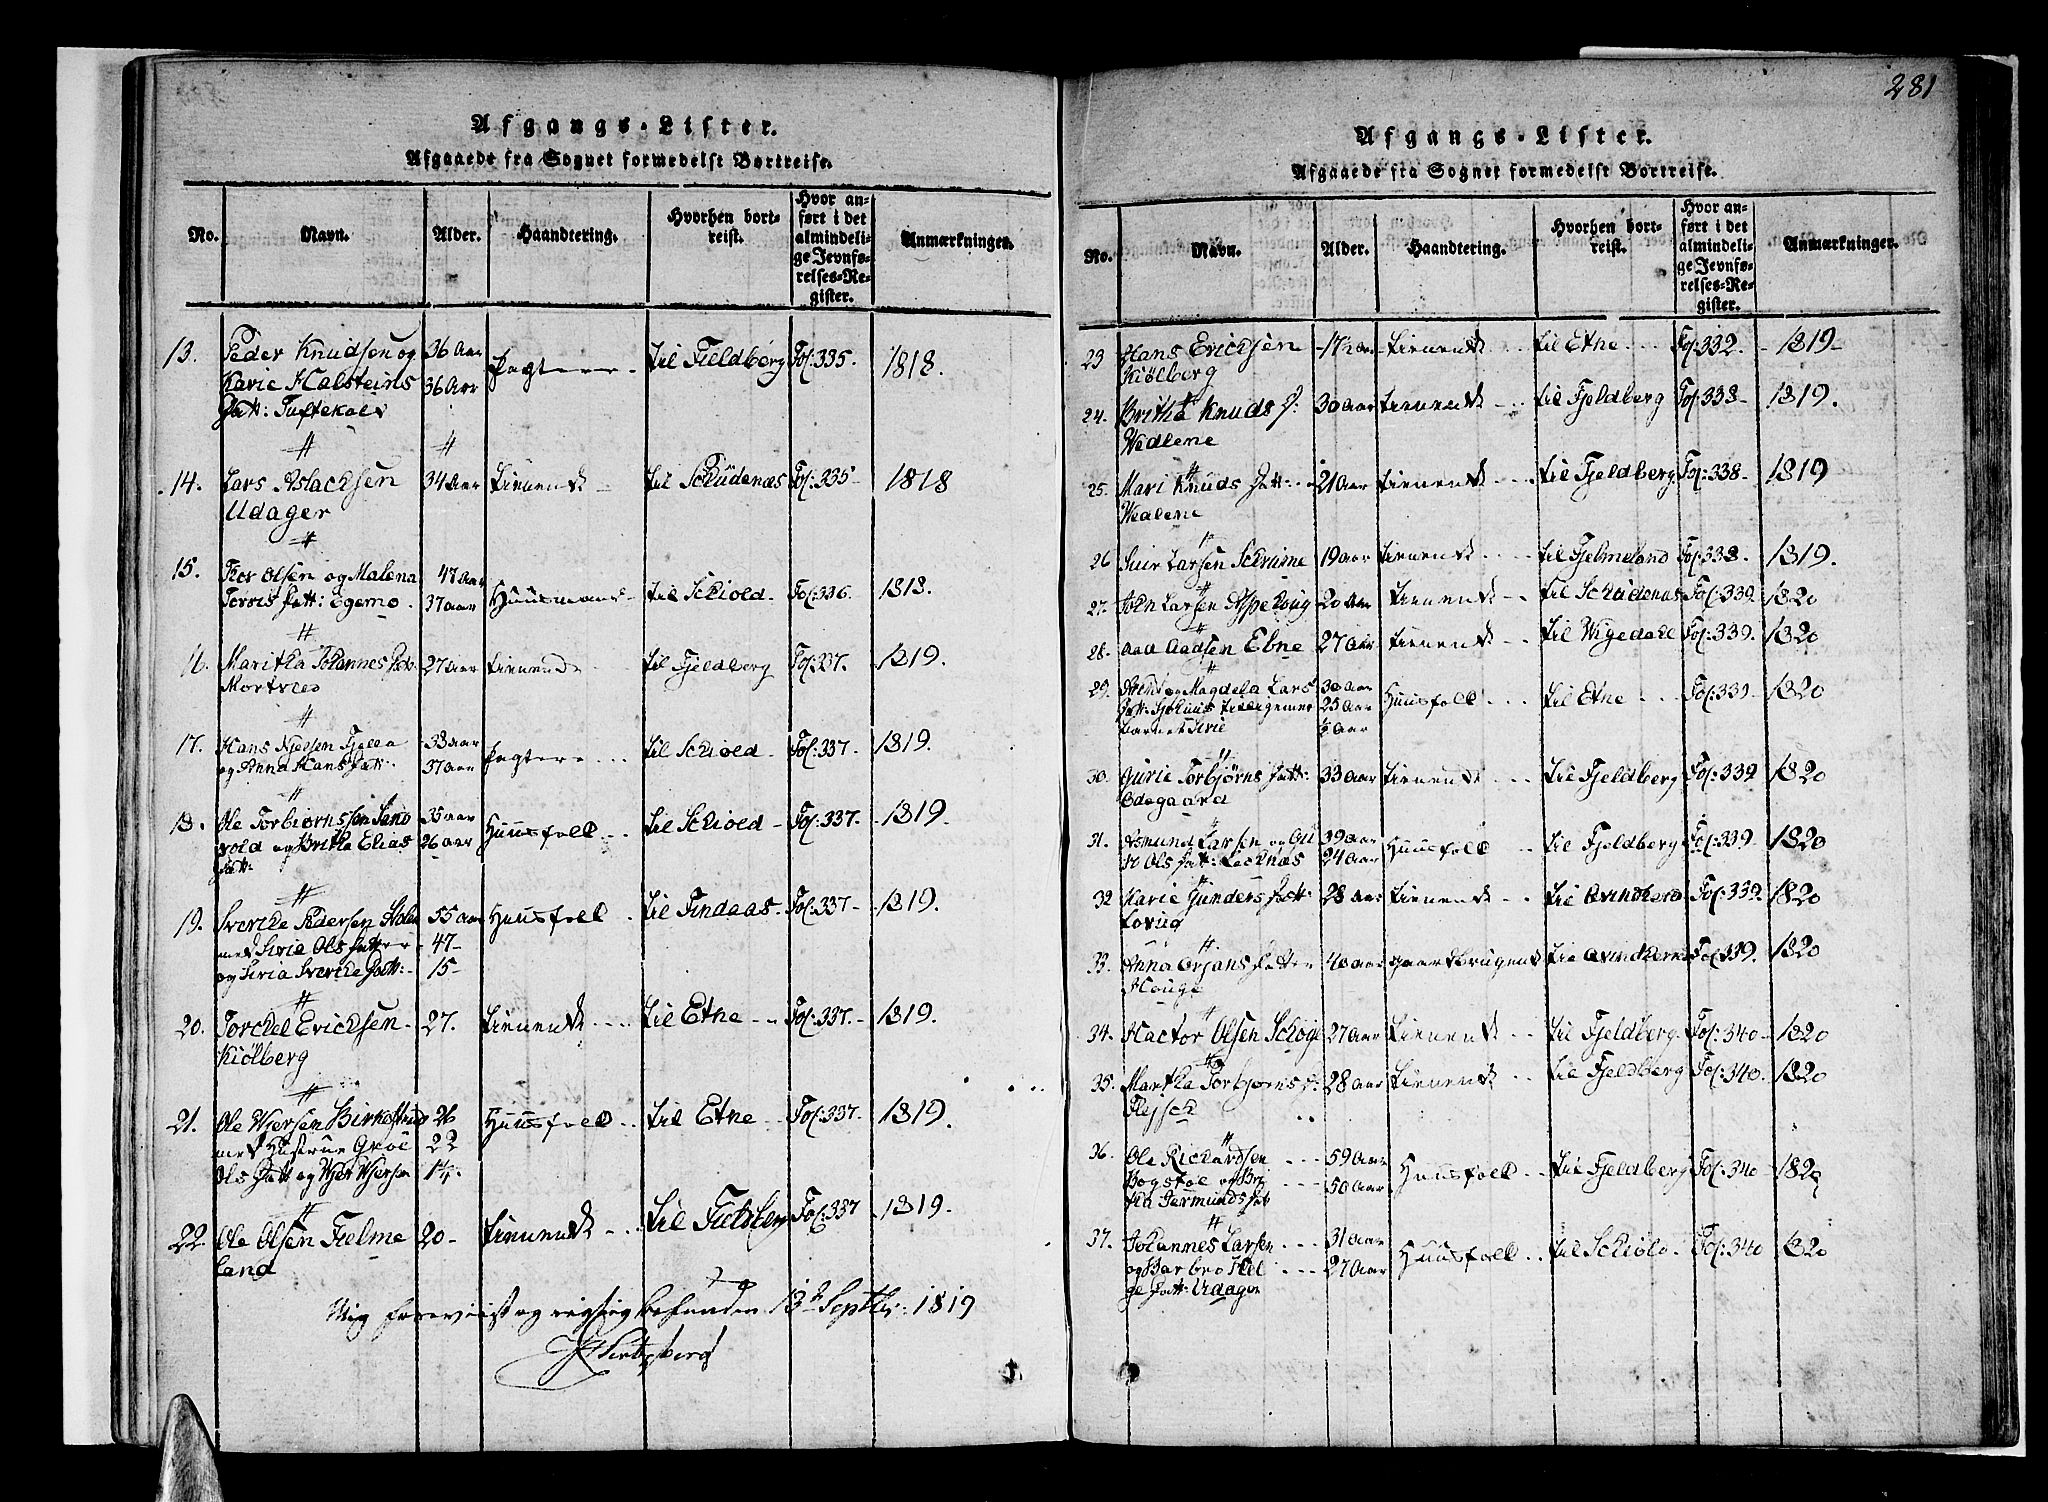 Afgangs-Lister.
Afgaaede fra Sognet formedelst Bortreise.
No. Navn. Alder. Haandtering. Hvorhen bortreist. Hvor anført i det almindelige Jevnførelses-Register. Anmærkninger.
13. Peder Knudsen og 36 Aar til Fieldberg Fol: 335. 1818.
Karie Halsteins 36 Aar
Datt: Tuftekalv
14. Lars Aslachsen 34 Aar tienende til Schudenæs Fol: 335 1818
Udager
15. Thor Olsen og Malena 47 Aar Huusmand til Schiold Fol: 336 1818.
Torris Datt: Egemo 37 Aar
16. Maritha Johannes Dat. 27 Aar tienende til Fjeldberg Fol: 337. 1819.
17. Hans Njelsen Fjella 38 Aar til Schiold Fol: 337. 1819.
og Anna Hans Datt: 37 Aar
18. Ole Torbiørnssen Sand 35 Aar Huusfolk til Schiold Fol: 337. 1819
vold og Britha Elias 26 Aar
Datt:
19. Sverche Pedersen 55 Aar Huusfolk til Findaas Fol: 337 1819.
med Sirie Ols Datter 47
og Siria Sverche Datt: 15
20. Torchel Ericksen 27. tienende til Etne Fol: 337. 1819.
Kiølberg
21. Ole Wiersen 26 Huusfolk til Etne Fol: 337. 1819.
med Hustrue Groe 22
Ols Datt og
22. Ole Olsen Fielme 20 tienende til Fieldberg Fol: 337 1819.
land
Mig foreviist og rigtig befunden 13de Septbr: 1819
281
Afgangs-Lister.
Afgaaede fra Sognet formedelst Bortreise.
No. Navn. Alder. Haandtering. Hvorhen bortreist. Hvor anført i det almindelige Jevnførelses-Register. Anmærkninger.
23 Hans Ericksen tienende til Etne Fol: 332. 1819
Kiølberg
24. Britha Knuds D: 30 Aar tienende til Fjeldberg Fol: 338 1819.
Wedlene
25. Mari Knuds Datt: 21 Aar tienende til Fjeldberg Fol: 338 1819
Wedlene
26 Larsen 19 Aar tienende til Fjelmeland Fol: 338 1819.
27. John Larsen 20 Aar tienende til Schudenæs Fol: 339. 1820
28. Aad Aadsen Ebne 27 Aar tienende til Wigedahl Fol: 339. 1820
29. og Magdela Lars 30 Aar Huusfolk til Etne Fol: 339 1820
Datt: 25 Aar
barnet Sirie ½ Aar
30. Gurie Torbjørns Datt: 33 Aar tienende til Fjeldberg Fol: 339 1820
Ødegaard
31. Asmund Larsen og Gu 39 Aar Huusfolk til Fjeldberg Fol: 339 1820
Ols Datt: 24 Aar
32 Karie Gunders Datt: 28 Aar tienende til Qvindherd Fol: 339. 1820
33. Anna Ørjans Datter 40 Aar gaardbrugende til Qvindherd Fol: 339. 1820
Houge
34. Hactor Olsen 27 Aar tienende til Fjeldberg Fol: 340 1820
35. Martha Torbjørns D: 28 Aar tienende til Fjeldberg Fol: 340. 1820
36. Ole Richardsen 59 Aar Huusfolk til Fjeldberg Fol: 340 1820
og Bri 50 Aar
tha Germunds Dat
37. Johannes Larsen 31 Aar Huusfolk til Schiold Fol: 340 1820
og Barbro Hel 27 Aar
ge Datt: Udager